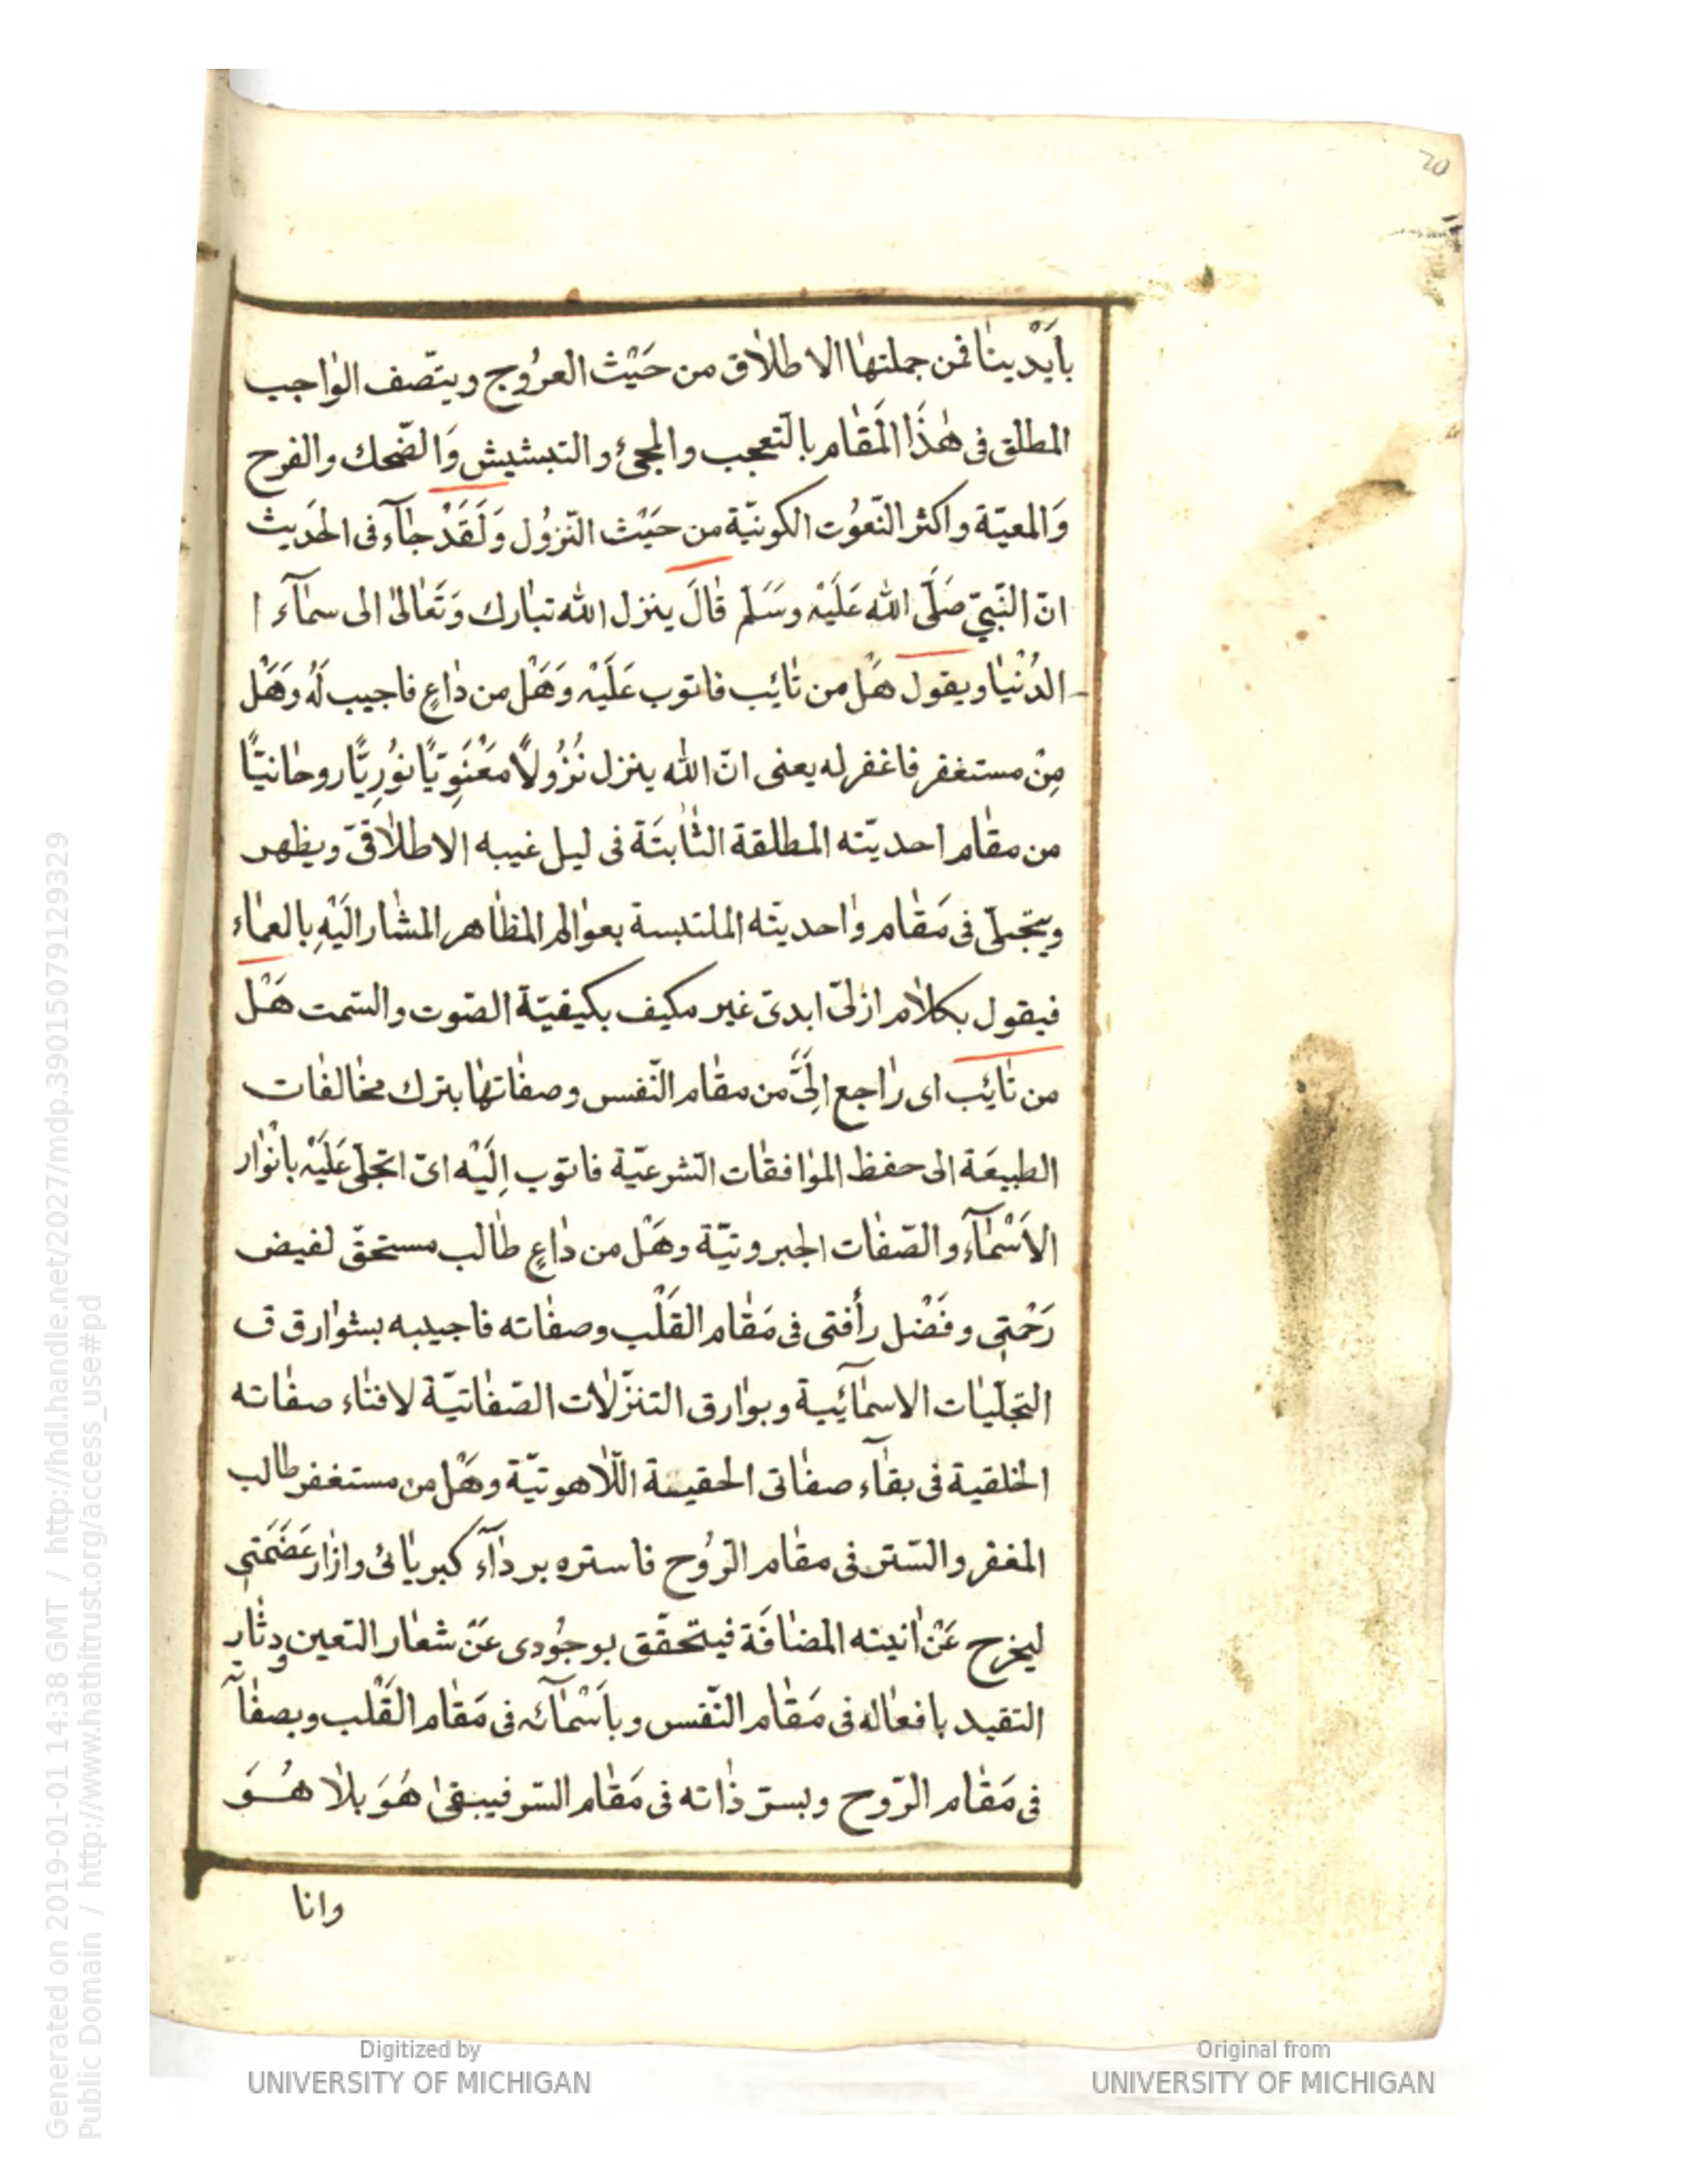 20
بأيْدينا فمن جملتها الاطلاق من حَيْث العرُوج ويتّصف الواجب
المطلق فى هٰذَا المَقام بالتعجب والمجئ والتبشيش وَالضّحك والفرح
وَالمعيّة واكثر النّعوُت الكونيّة من حَيْث النّزوُل وَلَقَدْ جآء فى الحَديث
انّ النّبىّ صَلَّى الله عَلَيْه وسَسَلم قالَ ينزل الله تبارك وَتَعالىٰ الى سمآء ا
الدُنْيا ويقول هَلْ من تائب فاتوب عَلَيْه وَهَلْ من داعٍ فاجيب لَهُ وَهَلْ
مِنْ مستغفر فاغفر له يعنى انّ الله ينزل نُزُولًا مَعْنَوِيًّا نوُرِيًّا روحانيًّا
من مقام احديّته المطلقة الثّابتَة فى ليل غيبه الاطلاقىّ ويظهر
ويتجلّى فى مَقام واحديته الملتبسة بعوالم المظاهر المشار الَيْهِ بالعماء
فيقول بكلام ازلىّ ابدىّ غير مكيف بكيفيّة الصّوت والسّمت هَلْ
من تائِب اى راجع اِلَىَّ من مقام النّفس وصفاتها بترك مخالفات
الطبيعَة الى حفظ الموافقات الشرعيّة فاتوب اِلَيْه اىّ اتجلّى عَلَيْه بانْوار
الاَسْمآء والصّفات الجبروتيّة وهَلْ من داعٍ طالب مستحقّ لفيض
رَحْمَتِى وفَضْل رأفتى فى مَقام القَلْب وصفاته فاجيبه بشوارق ق
التجلّيات الاسمآئيية وبوارق التنزّلات الصّفاتيّة لافناء صفاته
الخلقية فى بقآء صفاتى الحقيية اللّاهوتيّة وهَلْ من مستغفر طالب
المغفر والسّتر فى مقام الرّوُح فاستره برداآء كبريائى وازار عَضَمَتِى
ليخرج عَنْ انيته المضافَة فيتحقّق بوجوُدى عَنّ شعار التعين ودثار
التقيد بافعاله فى مَقام النّفس وباَسْمآئه فى مَقام القَلْب وبصفاآ
فى مَقام الرّوح وبسرّ ذاته فى مَقام السّر فيبقىٰ هُوَ بلا هُوَ
وانا
Generated on 2019-01-01 14:38 GMT / http://hdl.handle.net/2027/mdp.39015079129329
Public Domain / http://www.hathitrust.org/access_use#pd
Digitized by
UNIVERSITY OF MICHIGAN
Original from
UNIVERSITY OF MICHIGAN